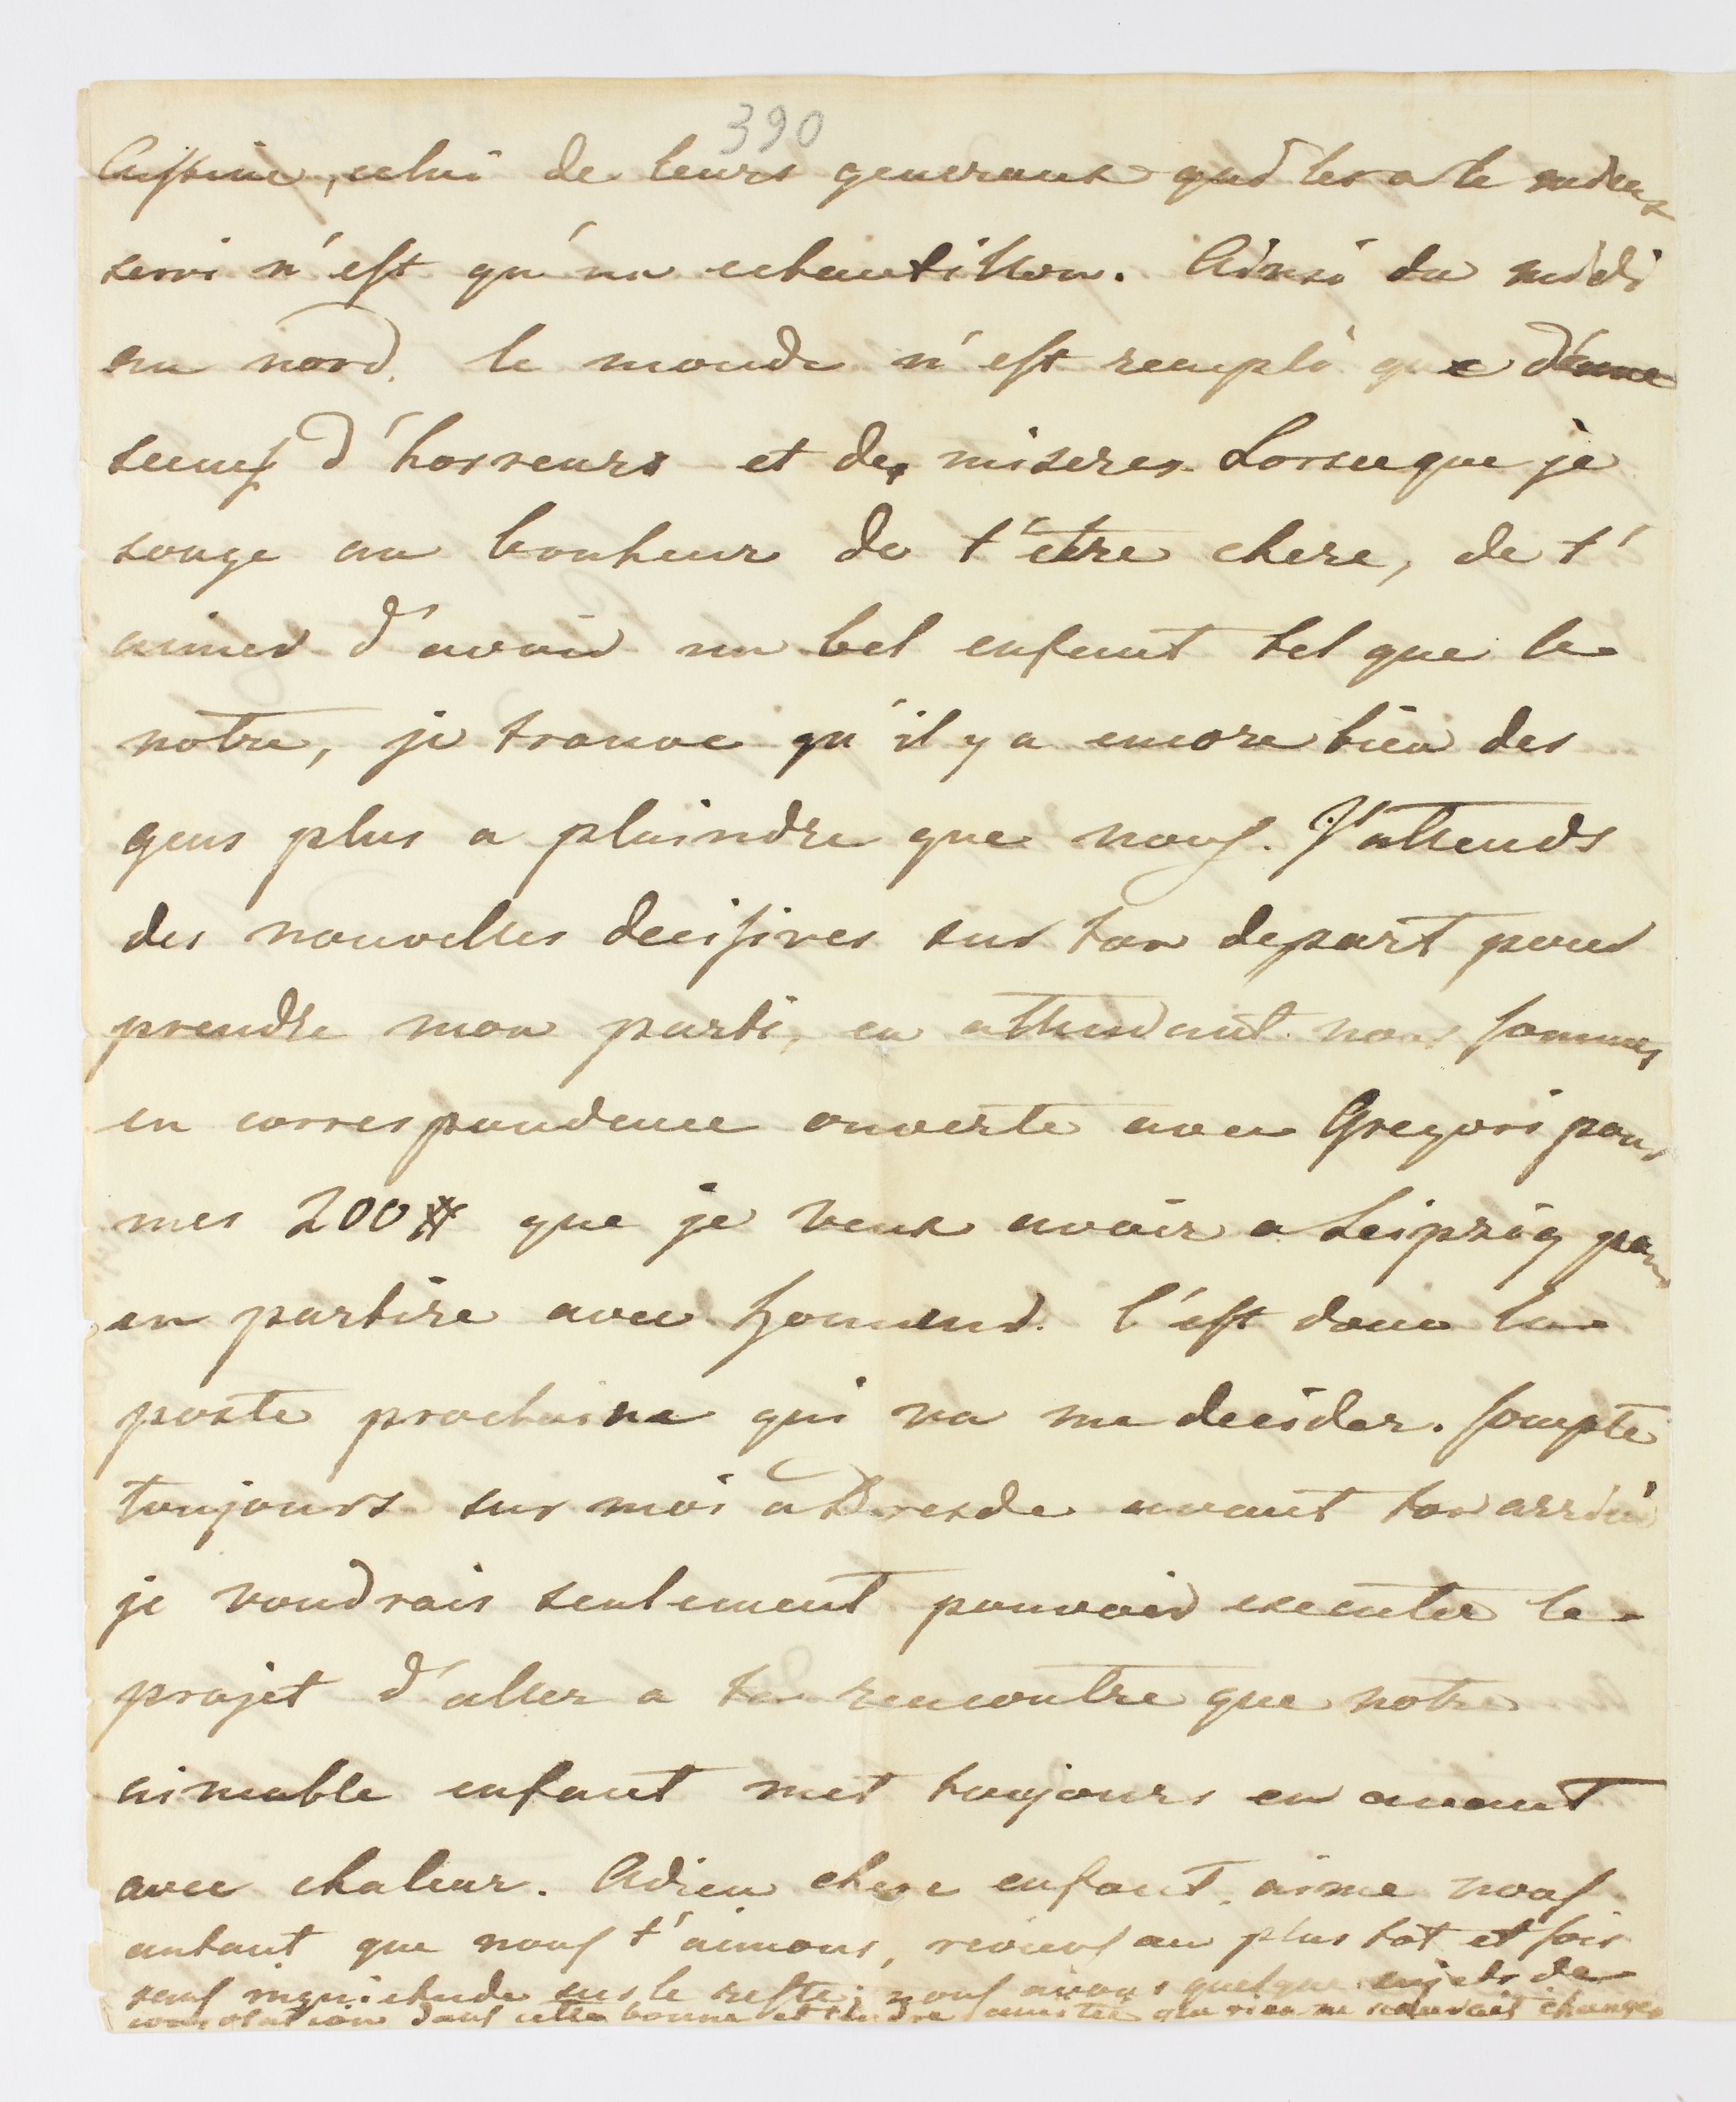 390
Custine, celui de leurs generaux qui les a le mieux
servi n'est qu'un echantillon. Ainsi du midi
au nord le monde n'est rempli que d'une
scenes d'horreurs et des miseres. Lorseque je
songe au bonheur de t'etre chere, de t'
aimer d'avoir un bel enfant tel que le
notre, je trouve qu'il y a encore bien des
gens plus a plaindre que nous. J'attends
des nouvelles decisives sur ton depart pour
prendre mon parti, en attendant nous sommes
en correspondence ouverte avec Gregori pour
mes 200# que je veux avoir a Leipzig pour
en partire avec . C'est donc la
poste prochaine qui va me decider. Compte
toujours sur moi a Dresde avant ton arrivé
je voudrais seulement pouvoir executer le
projet d'aller a ta rencontre que notre
aimable enfant met toujours en avant
avec chaleur. Adieu chere enfant, aime nous
autant que nous t'aimons, reviens au plus tôt et sois
sans inquietude sur le reste; nous avons quelque sujets de
consolation dans cette bonne et tendre amitée que rien ne scauroit changer